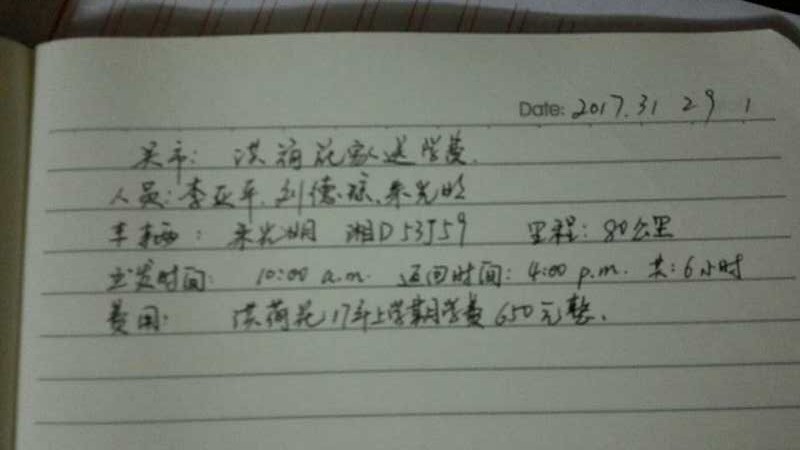 Date: 2017.31 29 1
吴市: 洪荷花家送学费.
人员: 李亚平. 刘德琼. 朱光明
车辆: 朱光明 湘D53J59 里程: 80公里
出发时间: 10:00 a.m. 返回时间: 4:00 p.m. 共: 6小时
费用: 洪荷花17年上学期学费650元整.